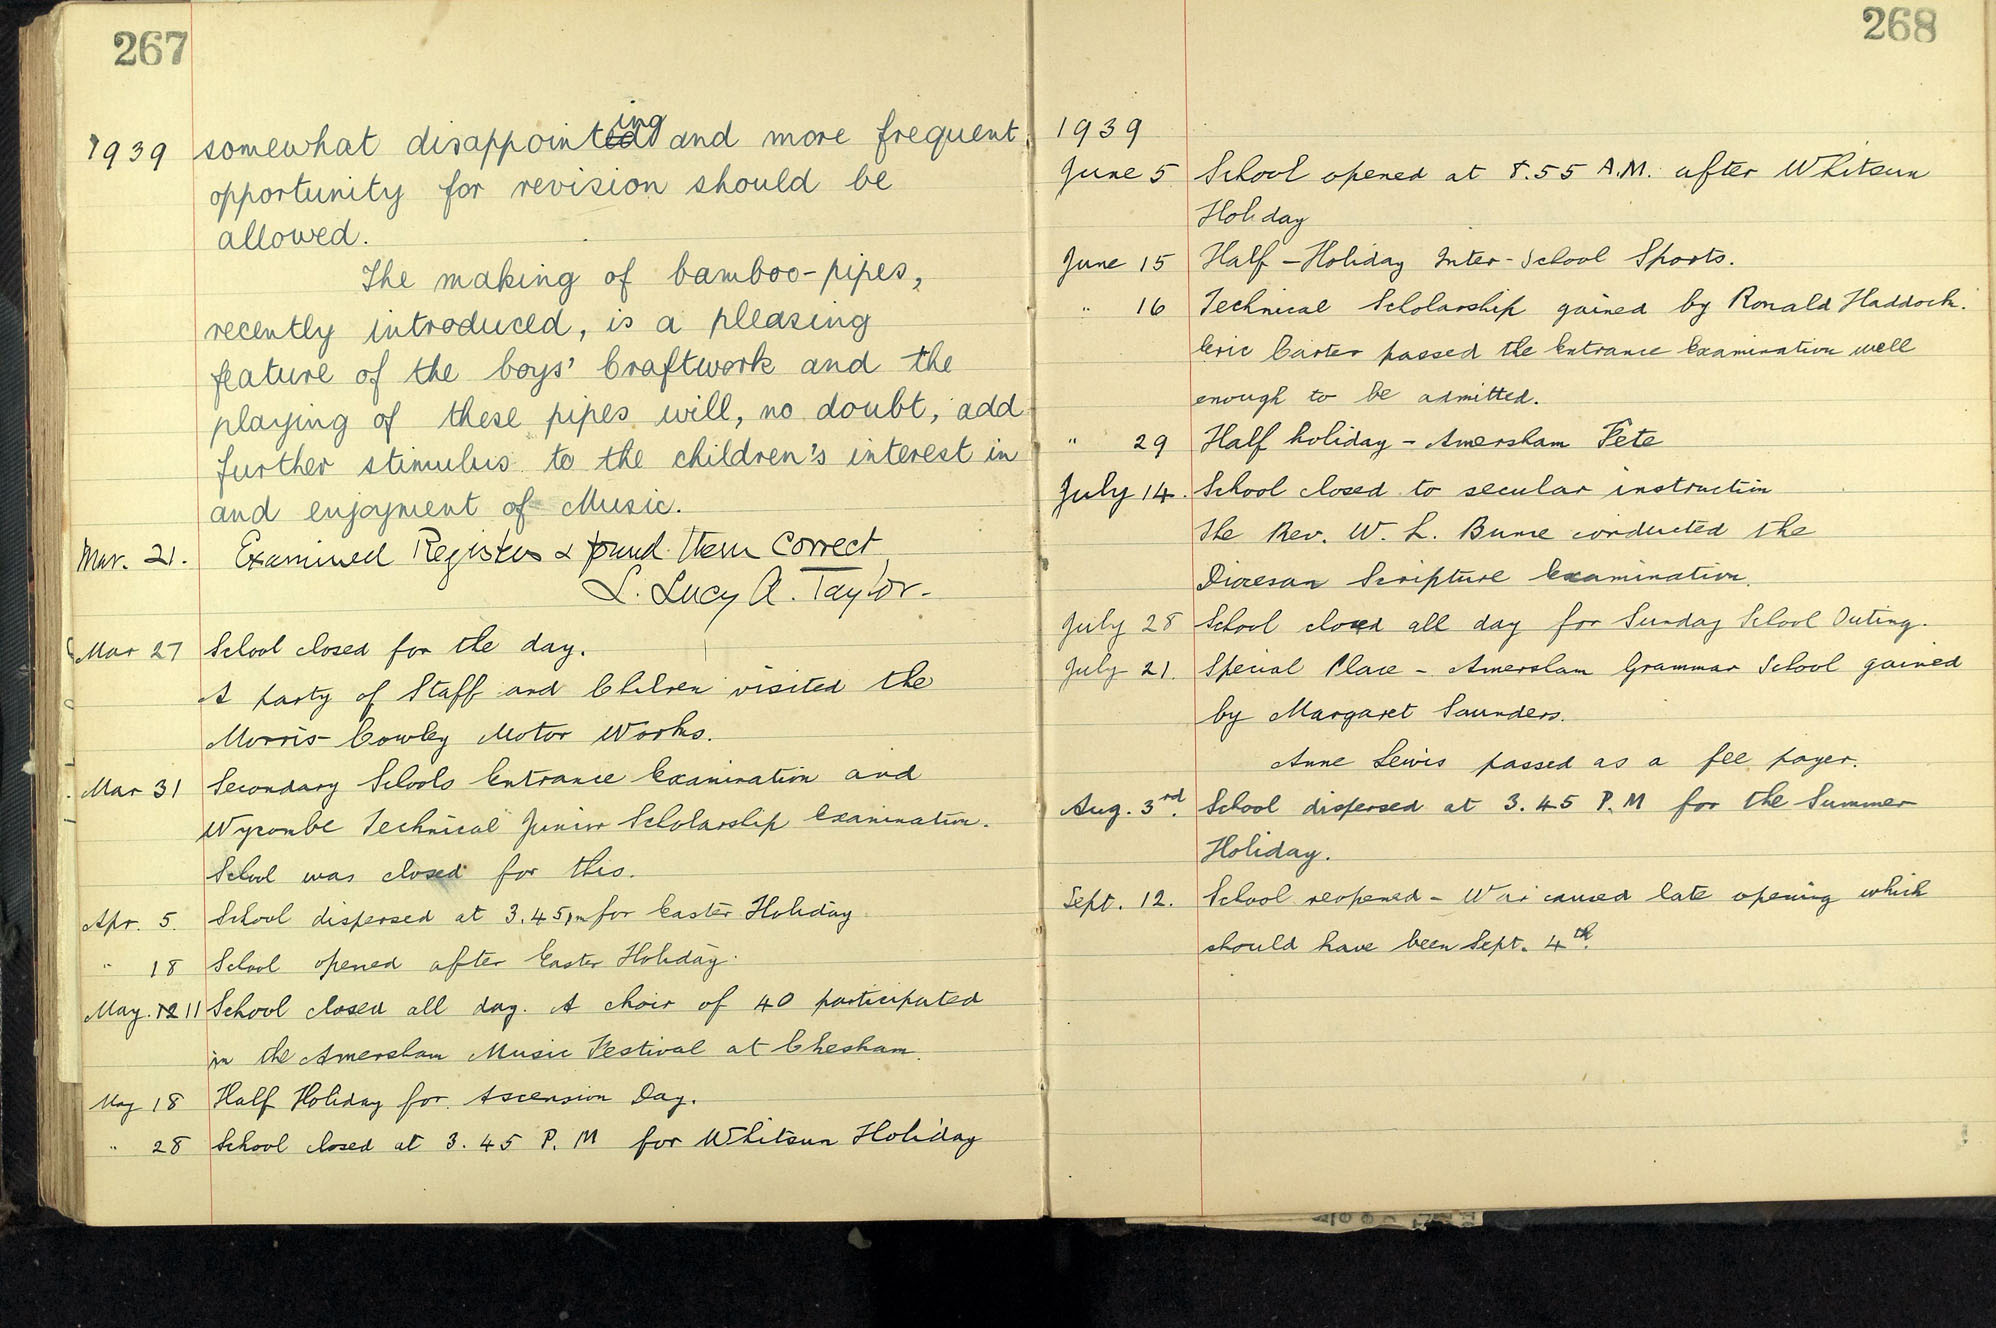 267
1939 somewhat disappointing and more frequent
opportunity for revision should be
allowed.
The making of bamboo-pipes,
recently introduced, is a pleasing
feature of the boys' Craftwork and the
playing of these pipes will, no doubt, add
further stimulus to the children's interest in
and enjoyment of Music.
Mar. 21. Examined Registers & found them correct
L. Lucy A. Taylor.
Mar 27 School closed for the day.
A party of Staff and Children visited the
Morris-Cowley Motor Works.
Mar 31 Secondary Schools Entrance Examination and
Wycombe Technical Junior Scholarship Examination.
School was closed for this.
Apr. 5. School dispersed at 3.45pm for Easter Holiday
" 18 School opened after Easter Holiday.
May. 12 11 School closed all day. A choir of 40 participated
in the Amersham Music Festival at Chesham.
May 18 Half Holiday for Ascension Day.
" 28 School closed at 3.45 P.M for Whitsun Holiday
268
1939
June 5 School opened at 8.55 A.M. after Whitsun
Holiday
June 15 Half-Holiday Inter-School Sports.
" 16 Technical Scholarship gained by Ronald Haddock.
Eric Carter passed the Entrance Examination well
enough to be admitted.
" 29 Half holiday - Amersham Fete
July 14. School closed to secular instruction
The Rev. W. L. conducted the
Diocesan Scripture Examination.
July 28 School closed all day for Sunday School Outing.
July 21. Special Place - Amersham Grammar School gained
by Margaret Saunders.
Anne Lewis passed as a fee payer.
Aug. 3rd. School dispersed at 3.45 P.M for the Summer
Holiday.
Sept. 12. School reopened - War caused late opening which
should have been Sept. 4th.